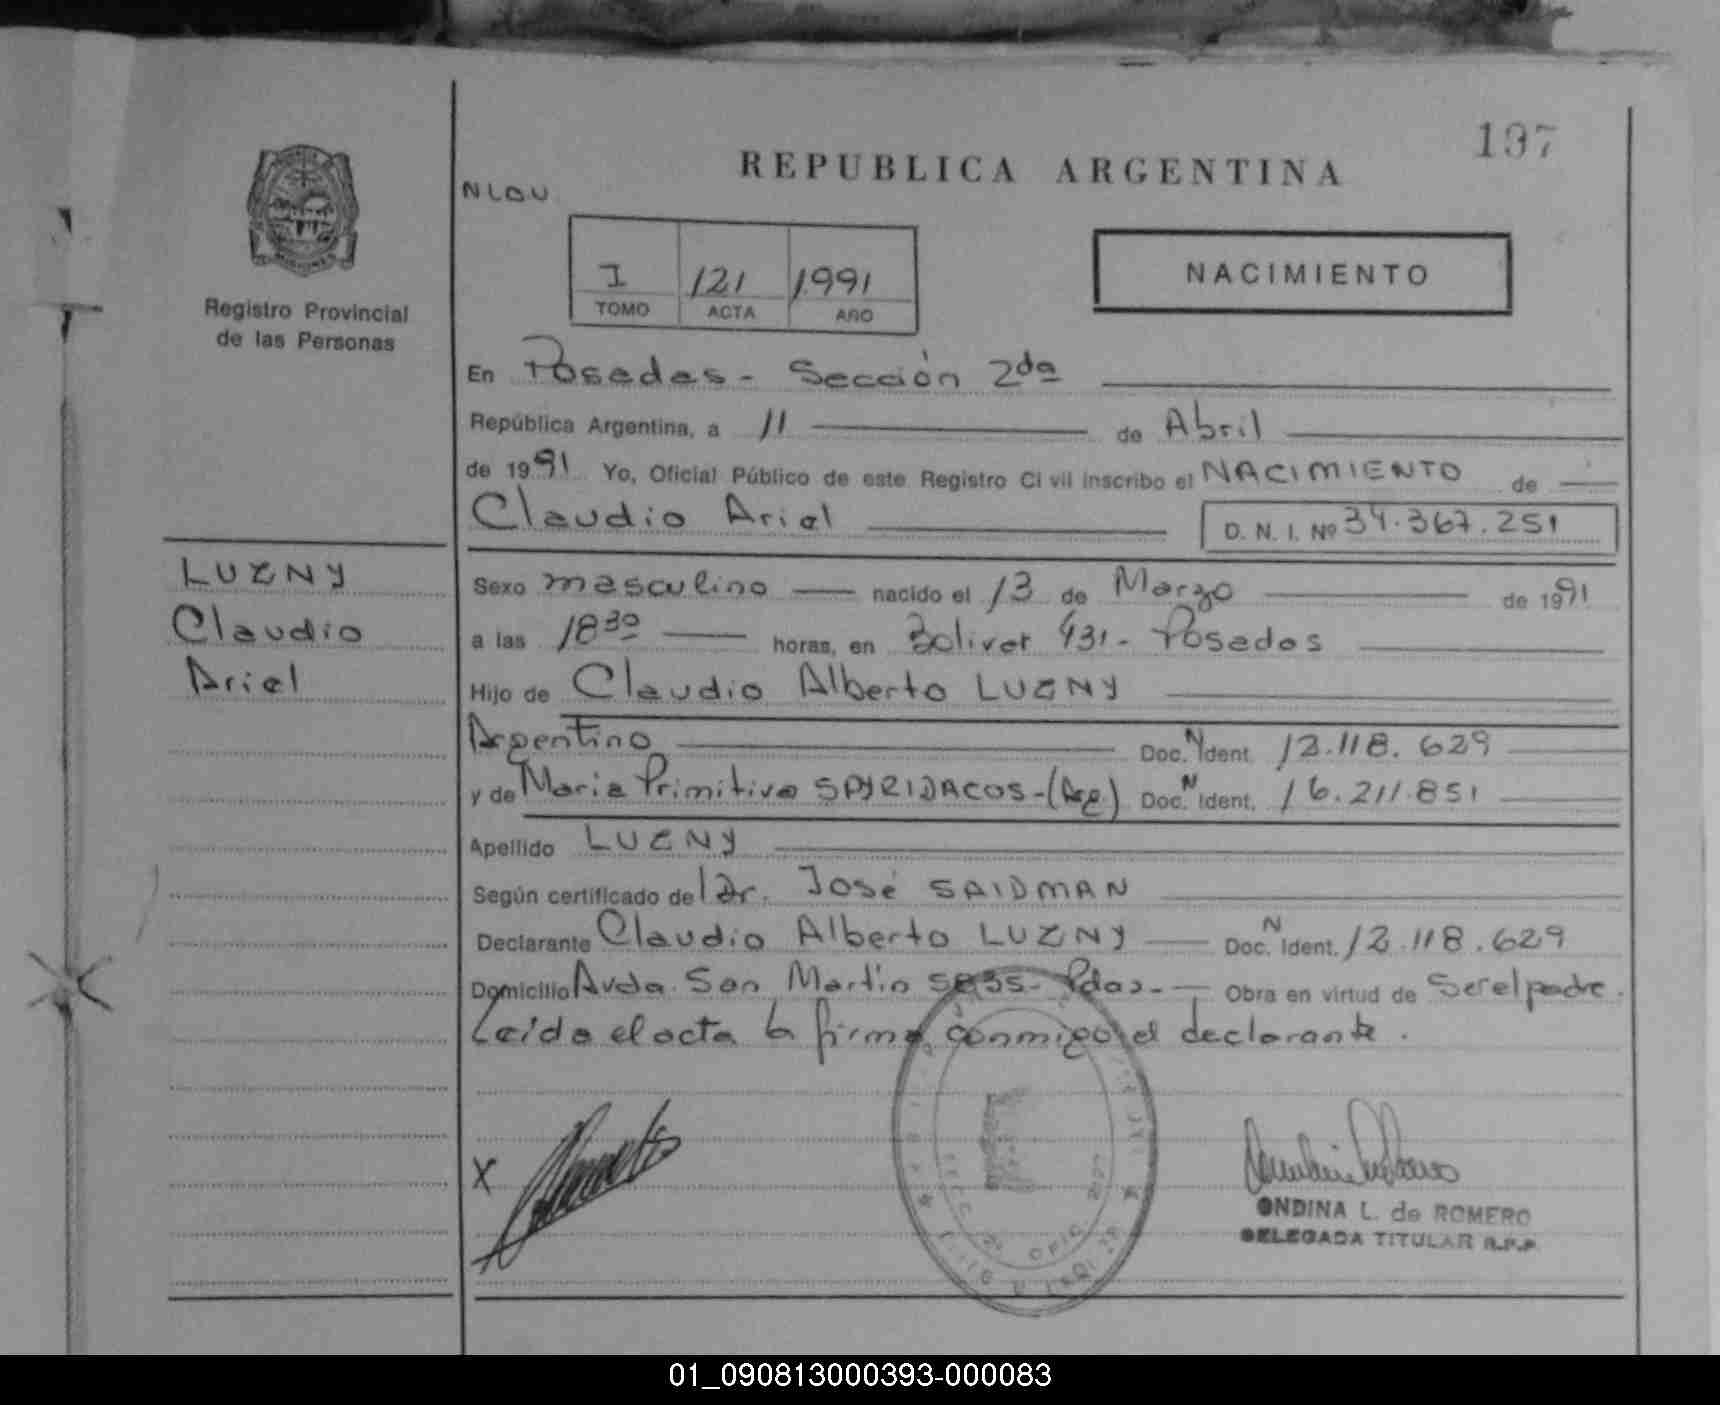 197
REPUBLICA ARGENTINA
NLOU
I 121 1991
TOMO ACTA AÑO
NACIMIENTO
Registro Provincial
de las Personas
En Posadas - Sección 2da
República Argentina, a 11 de Abril
de 1991 Yo, Oficial Público de este Registro Civil inscribo el NACIMIENTO de
Claudio Ariel D. N. I. Nº 34.367.251
LUZNY
Claudio
Ariel
Sexo masculino nacido el 13 de Marzo de 1991
a las 18 30 horas, en Bolivar 431 - Posadas
Hijo de Claudio Alberto LUZNY
Argentino Doc. N Ident. 12.118.629
y de Maria Primitiva SPYRIDACOS - (Arg.) Doc. N Ident. 16.211.851
Apellido LUZNY
Según certificado del Dr. José SAIDMAN
Declarante Claudio Alberto LUZNY Doc. N Ident. 12.118.629
Domicilio Avda. San Martin Pdas. - Obra en virtud de Ser el padre.
Leida el acta la firma conmigo el declarante.
X
OFIC
ONDINA L. de ROMERO
DELEGADA TITULAR R.P.P.
01_090813000393-000083